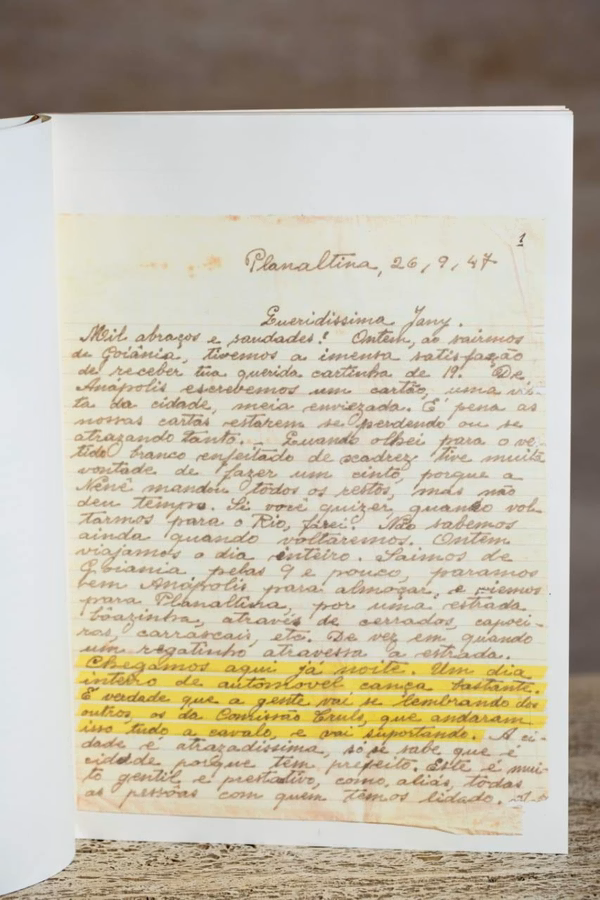 1
Planaltina, 26, 9, 47
Queridissima Jany.
Mil abraços e saudades! Ontem, ao sairmos
de Goiânia, tivemos a imensa satisfação
de receber tua querida cartinha de 19. De
Anápolis escrevemos um cartão, uma vis-
ta da cidade, meia enviezada. É pena as
nossas cartas estarem se perdendo ou se
atrazando tanto. - Quando olhei para o ves-
tido branco enfeitado de xadrez tive muita
vontade de fazer um cinto, porque a
Nenê mandou todos os restos, mas não
deu tempo. Si você quizer, quando vol-
tarmos para o Rio, farei. Não sabemos
ainda quando voltaremos. Ontem
viajamos o dia inteiro. Saimos de
Goiania pelas 9 e pouco, paramos
bem Anápolis para almoçar, e viemos
para Planaltina, por uma estrada
bôazinha, através de cerrados, capoei-
ras, carrascais, etc. De vez em quando
um regatinho atravessa a estrada.
Chegamos aqui já noite. Um dia
inteiro de automovel cança bastante.
É verdade que a gente vai se lembrando dos
outros, os da Comissão Cruls, que andaram
isso tudo a cavalo, e vai suportando. A ci-
dade é atrazadissima, só se sabe que é
cidade porque tem prefeito. Este é mui-
to gentil e prestativo, como, aliás, todas
as pessôas com quem têmos lidado.